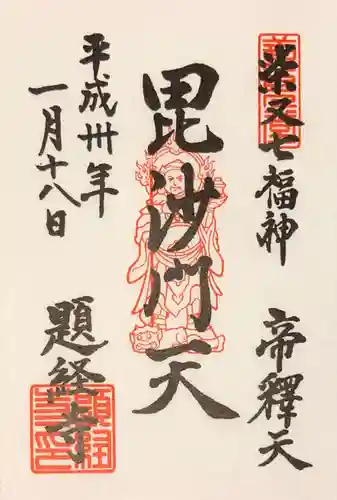 柴又七福神
帝釋天
毘沙門天
平成卅年
一月十八日
題経寺